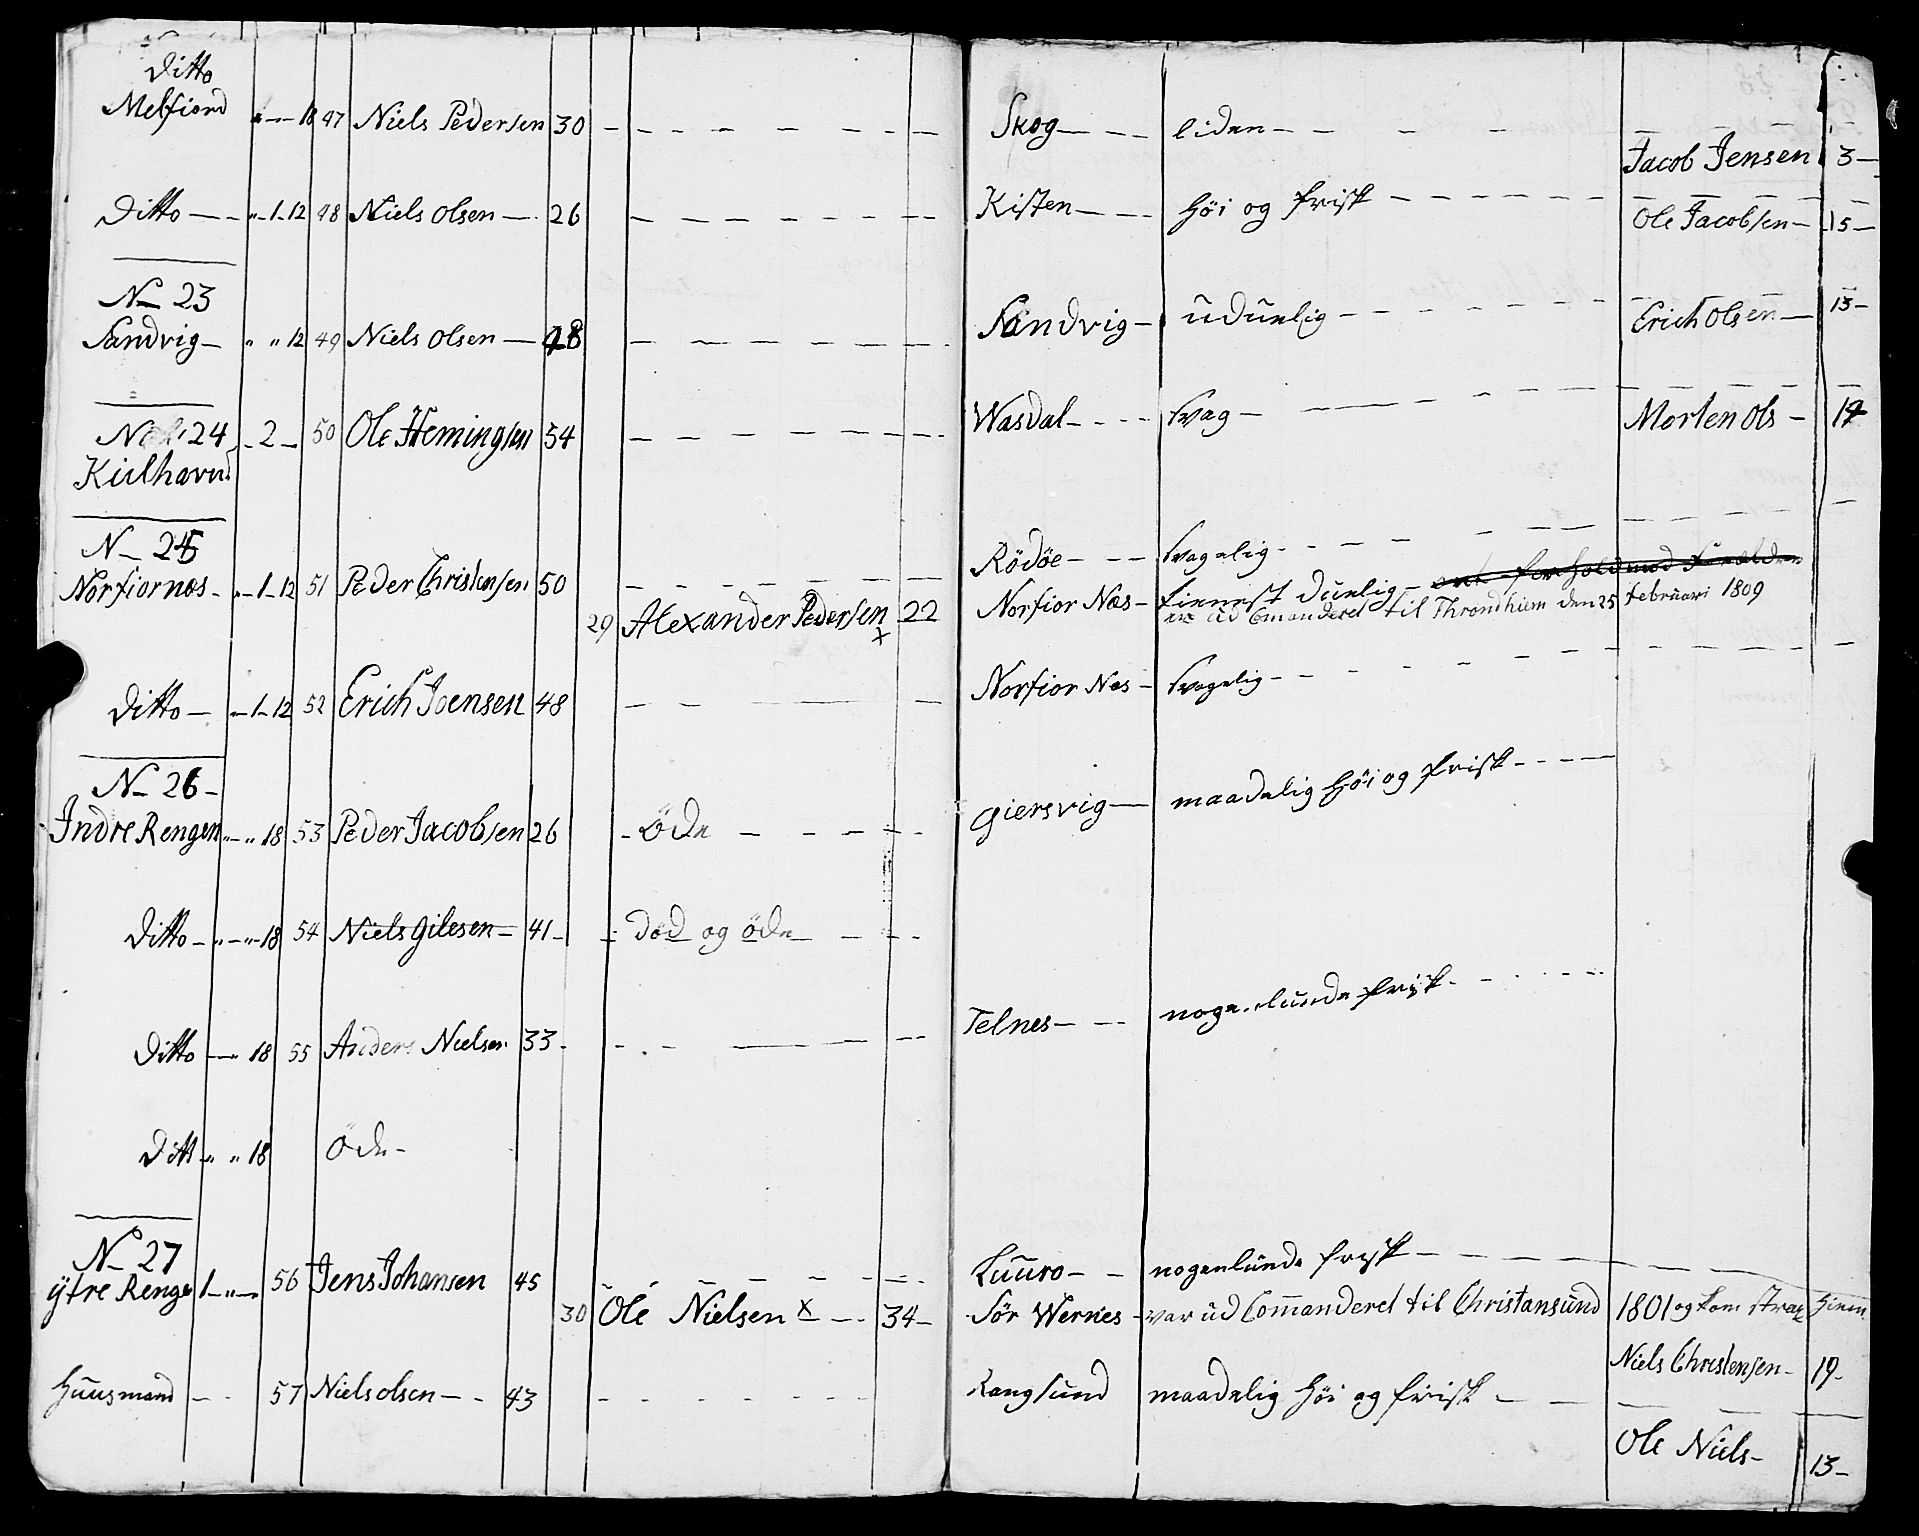 Ditto
Melfiord " — 18 47 Niels Pedersen 30 — — — — Skog — — liden — — — —
Jacob Jensen 3 —
Ditto — " 1 - 12 48 Niels Olsen — 26 — — — — Kisten — — — Höi og frisk — — — — Ole Jacobsen — 15 —
N — 23
Sandvig — " " 12 49 Niels Olsen — 48 — — — — Sandvig — uduelig — — — — Erich Olsen — 13 —
No 24 - 2 — 50 Ole Hemingsen 54 — — — — Wasdal — — — svag — — — — Morten Ols — 14
Kiilhavn
N — 25
Norfiornæs — " 1 - 12 51 Peder Christensen 50 — — — — Rödöe — — — svagelig — — — —
29 Alexander Pedersen x 22 Norfior Næs — tienest Duelig —
er ud Comanderet til Throndhiem den 25 februari 1809
Ditto — — 1 - 12 52 Erich Joensen 48 — — — — Norfior Næs — svagelig — — — —
N — 26 —
Indre Rengen " — " 18 53 Peder Jacobsen 26 - öde — — — — Giersvig — maadelig Höi og frisk — — — —
Ditto — " — " 18 54 Niels Gilesen — 41 - - död og öde — — —
Ditto — — " 18 55 Anders Nielsen 33 - — — — Telnes — — — nogenlunde frisk — — — —
Ditt " " 18 öde —
N — 27
ytre Renge 1 — " — 56 Jens Johansen 45 — — — — Luuro — — nogenlunde frisk — — — —
30 Ole Nielsen x — — 34 — Sör Wernes — var ud Commanderet til Christansund 1801 og kom strax hiem
Niels Christensen — 19 —
Huusmand — — 57 Niels Olsen — — 43 — — — — Rangsund maadelig Höi og frisk — —
Ole Niels — 13 —